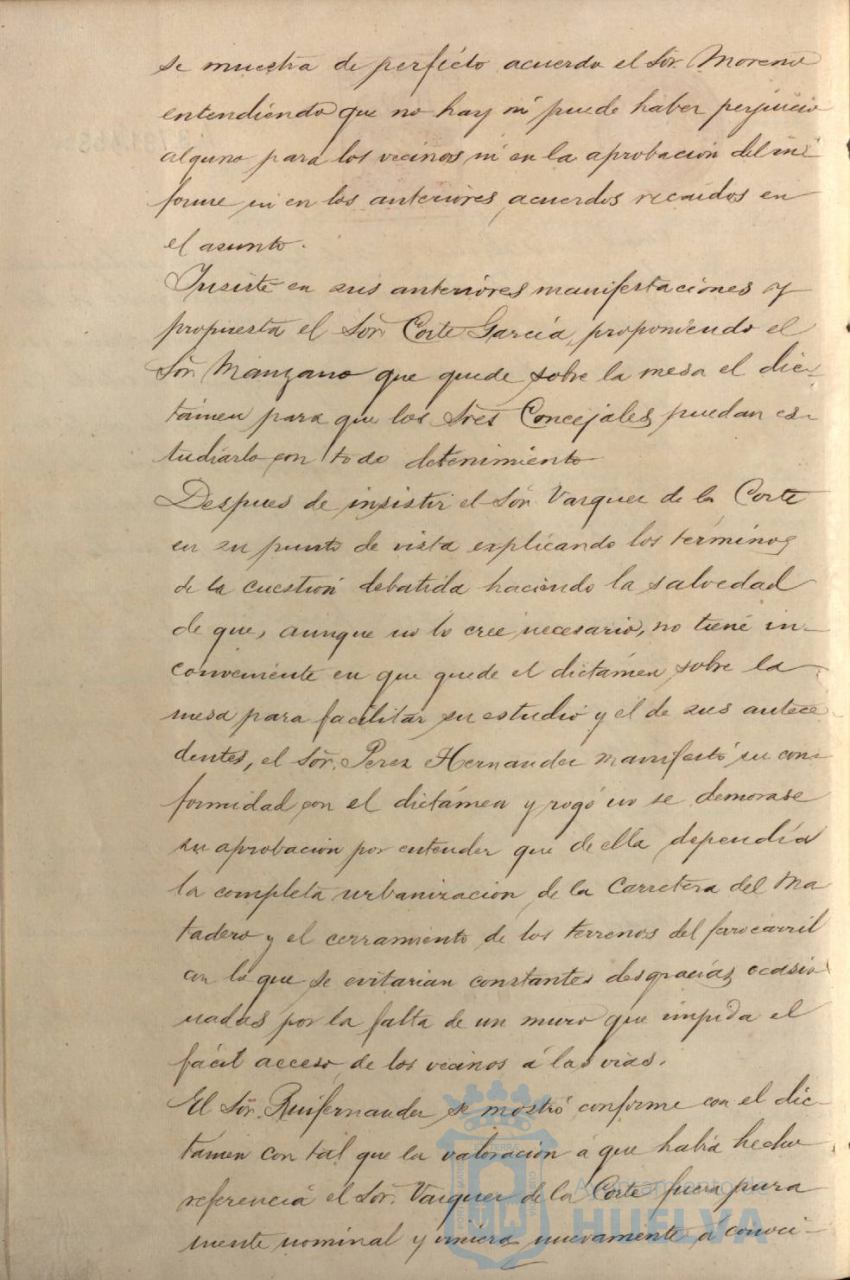 se muestra de perfécto acuerdo el Sor. Moreno
entendiendo que no hay ni puede haber perjuicio
alguno para los vecinos ni en la aprobacion del in-
forme ni en los anteriores acuerdos recaidos en
el asunto.
Insiste en sus anteriores manifestaciones y
propuesta el Sor. Corte García, proponiendo el
Sor. Manzano que quede sobre la mesa el dic-
támen para que los Sres Concejales puedan es-
tudiarlo con todo detenimiento
Despues de insistir el Sor. Vazquez de la Corte
en su punto de vista explicando los términos
de la cuestión debatida haciendo la salvedad
de que, aunque no lo cree necesario, no tiene in-
conveniente en que quede el dictámen sobre la
mesa para facilitar su estudio y el de sus antece
dentes, el Sor. Perez Hernandez manifestó su con-
formidad con el dictámen y rogó no se demorase
su aprobacion por entender que de ella dependía
la completa urbanizacion de la Carretera del Ma
tadero y el cerramiento de los terrenos del ferrocarril
con lo que se evitarian constantes desgracias ocasio
nadas por la falta de un muro que impida el
fácil acceso de los vecinos á las vias.
El Sor. Ruifernandez se mostró conforme con el dic-
támen con tal que la valoración á que había hecho
referencia el Sor. Vazquez de la Corte fuera pura
mente nominal y viniera nuevamente á conoci-
Ayuntamiento de
HUELVA